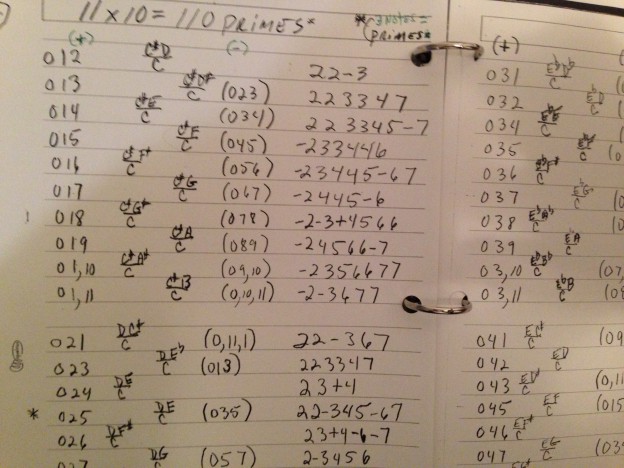 11 x 10 = 110 PRIMES* * 3 NOTES = PRIMES*
(+) (-)
012 C#D/C 22-3
013 C#D#/C (023) 223347
014 C#E/C (034) 223345-7
015 C#F/C (045) -233446
016 C#F#/C (056) -23445-67
017 C#G/C (067) -2445-6
018 C#G#/C (078) -2-3+4566
019 C#A/C (089) -24566-7
01,10 C#A#/C (09,10) -2356677
01,11 C#B/C (0,10,11) -2-3677
021 DC#/C (0,11,1) 22-367
023 DEb/C (013) 223347
024 DE/C 23+4
* 025 DE/C (035) 22-345-67
026 DF#/C 23+4-6-7
027 DG/C (057) 2-3456
(+)
031
032
034
035
036
037 EbG
038 EbAb
039 EA
03,10 EbBb
03,11 EbB
041 EC# (09
042 ED
043 ED# (0,11
045 EF (015
046 EF#
047 EG (03